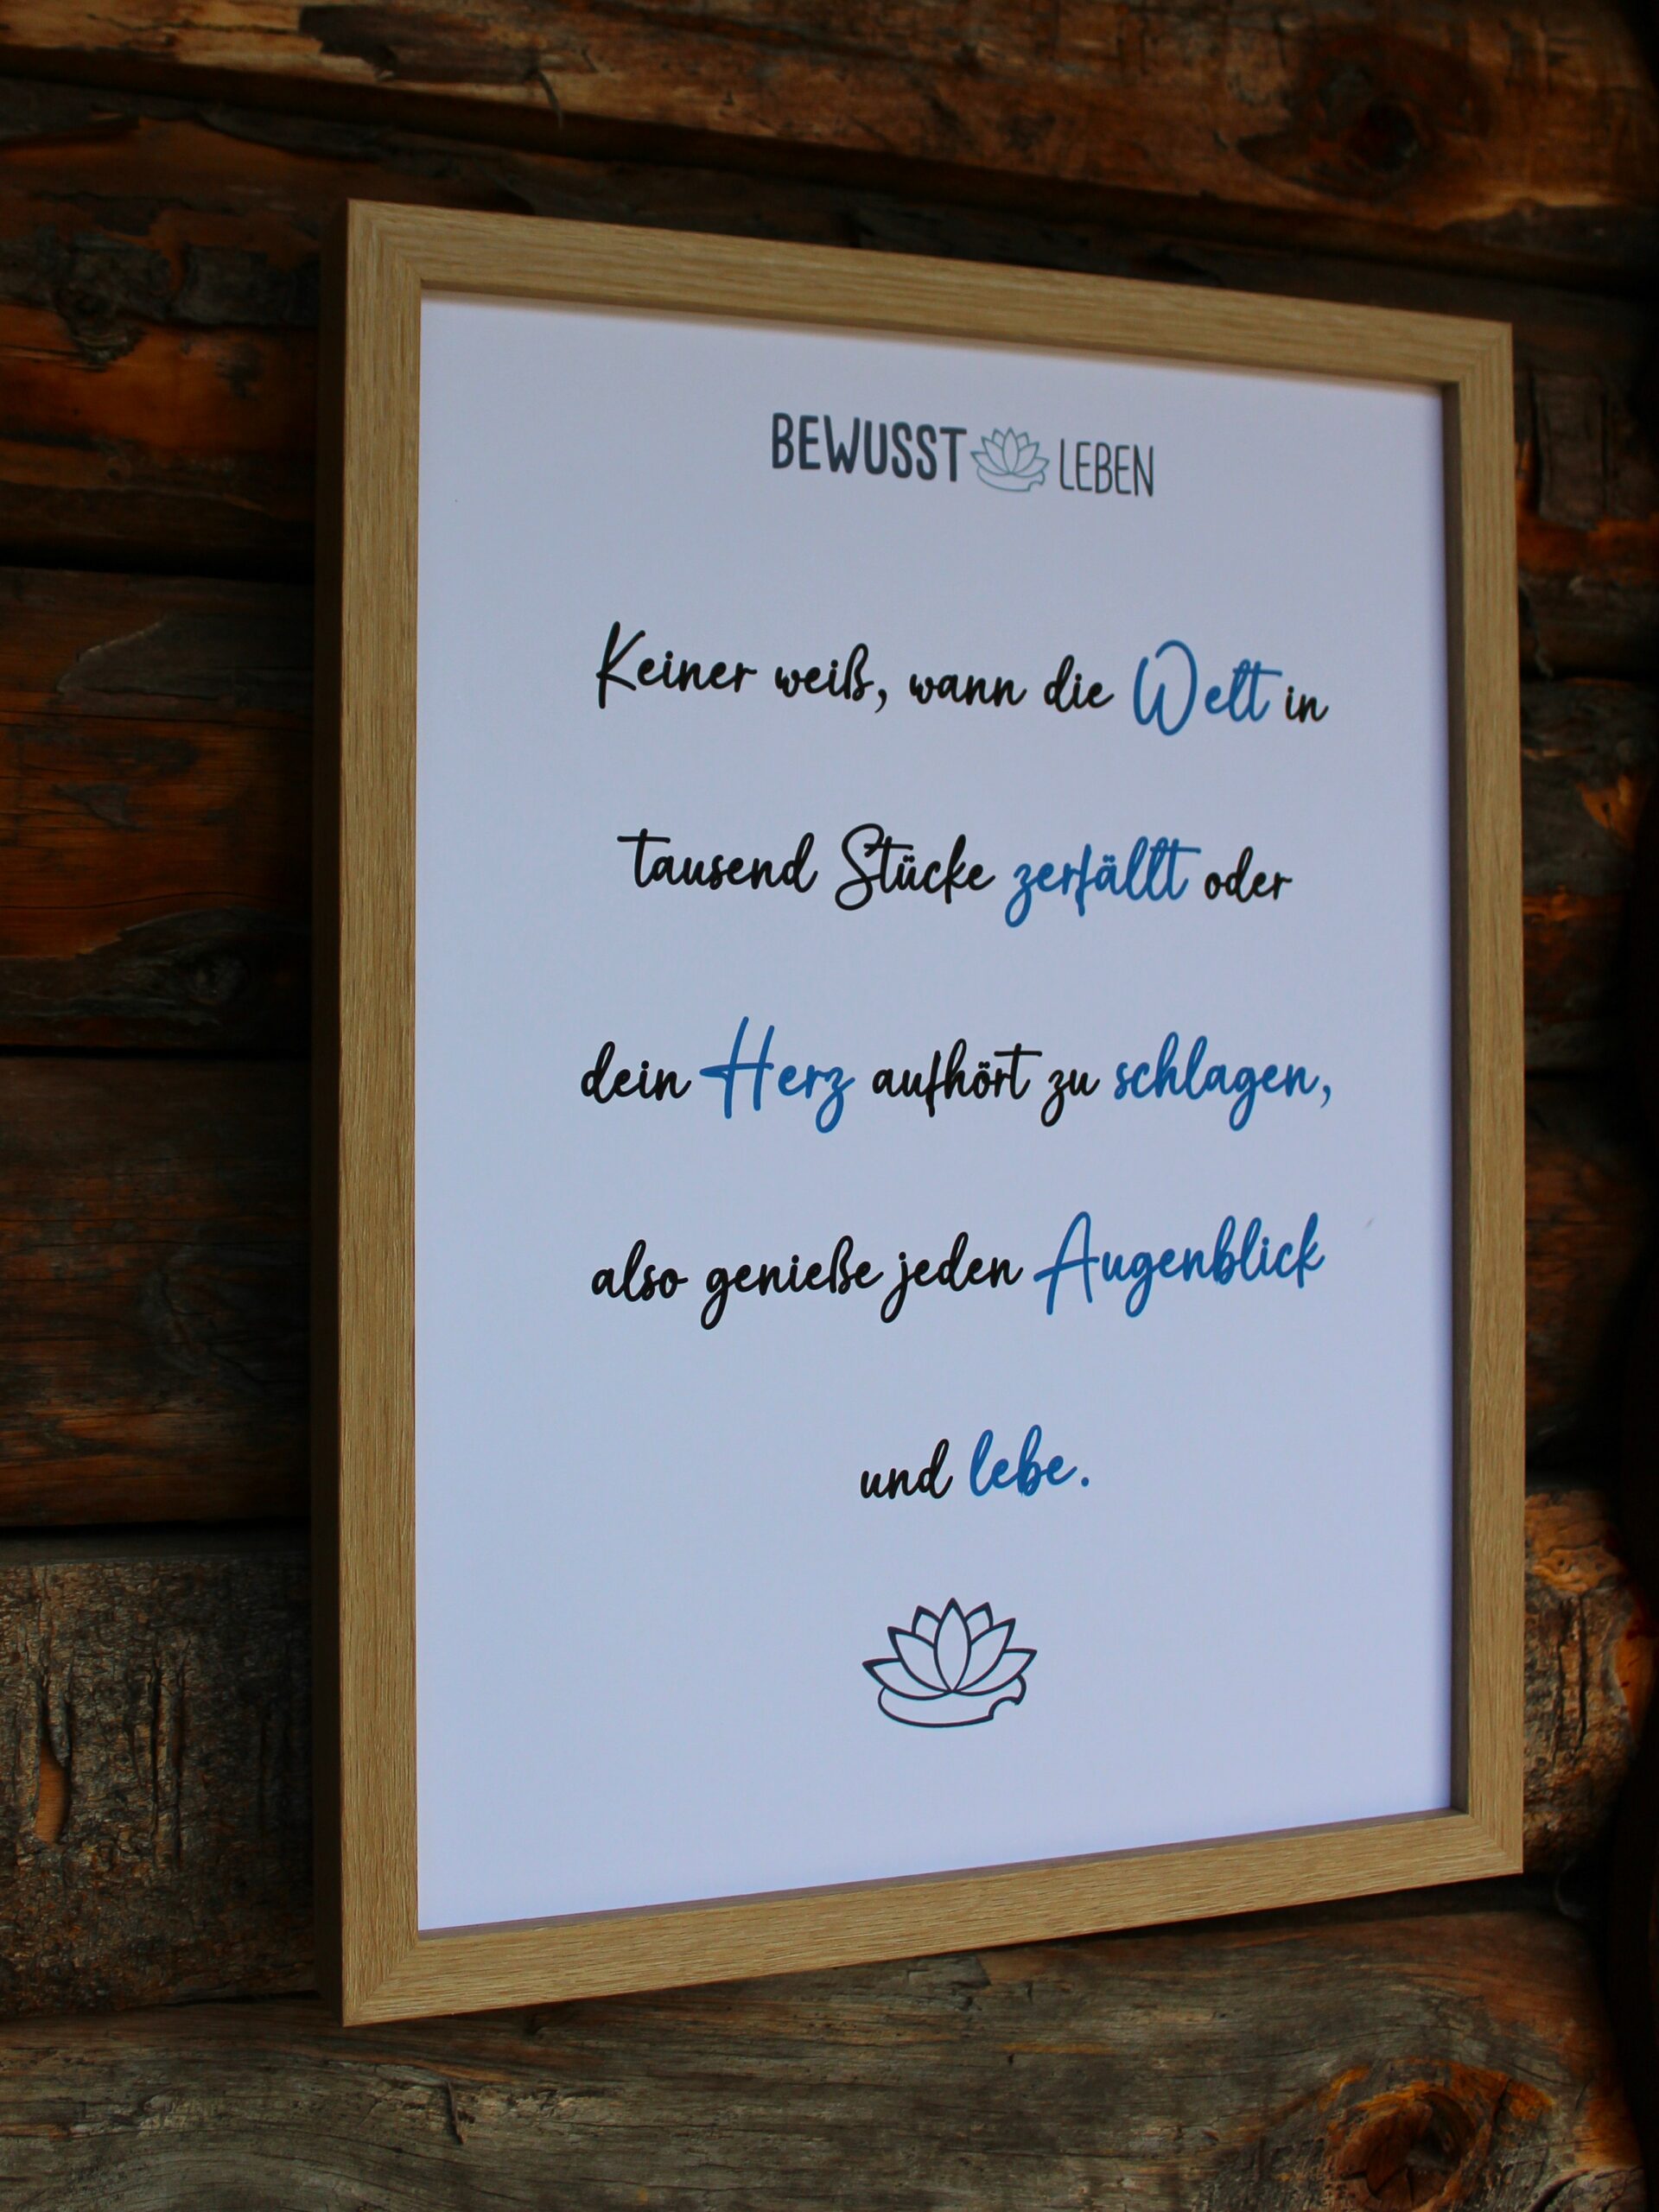 BEWUSST LEBEN
Keiner weiß, wann die Welt in
tausend Stücke zerfällt oder
dein Herz aufhört zu schlagen,
also genieße jeden Augenblick
und lebe.